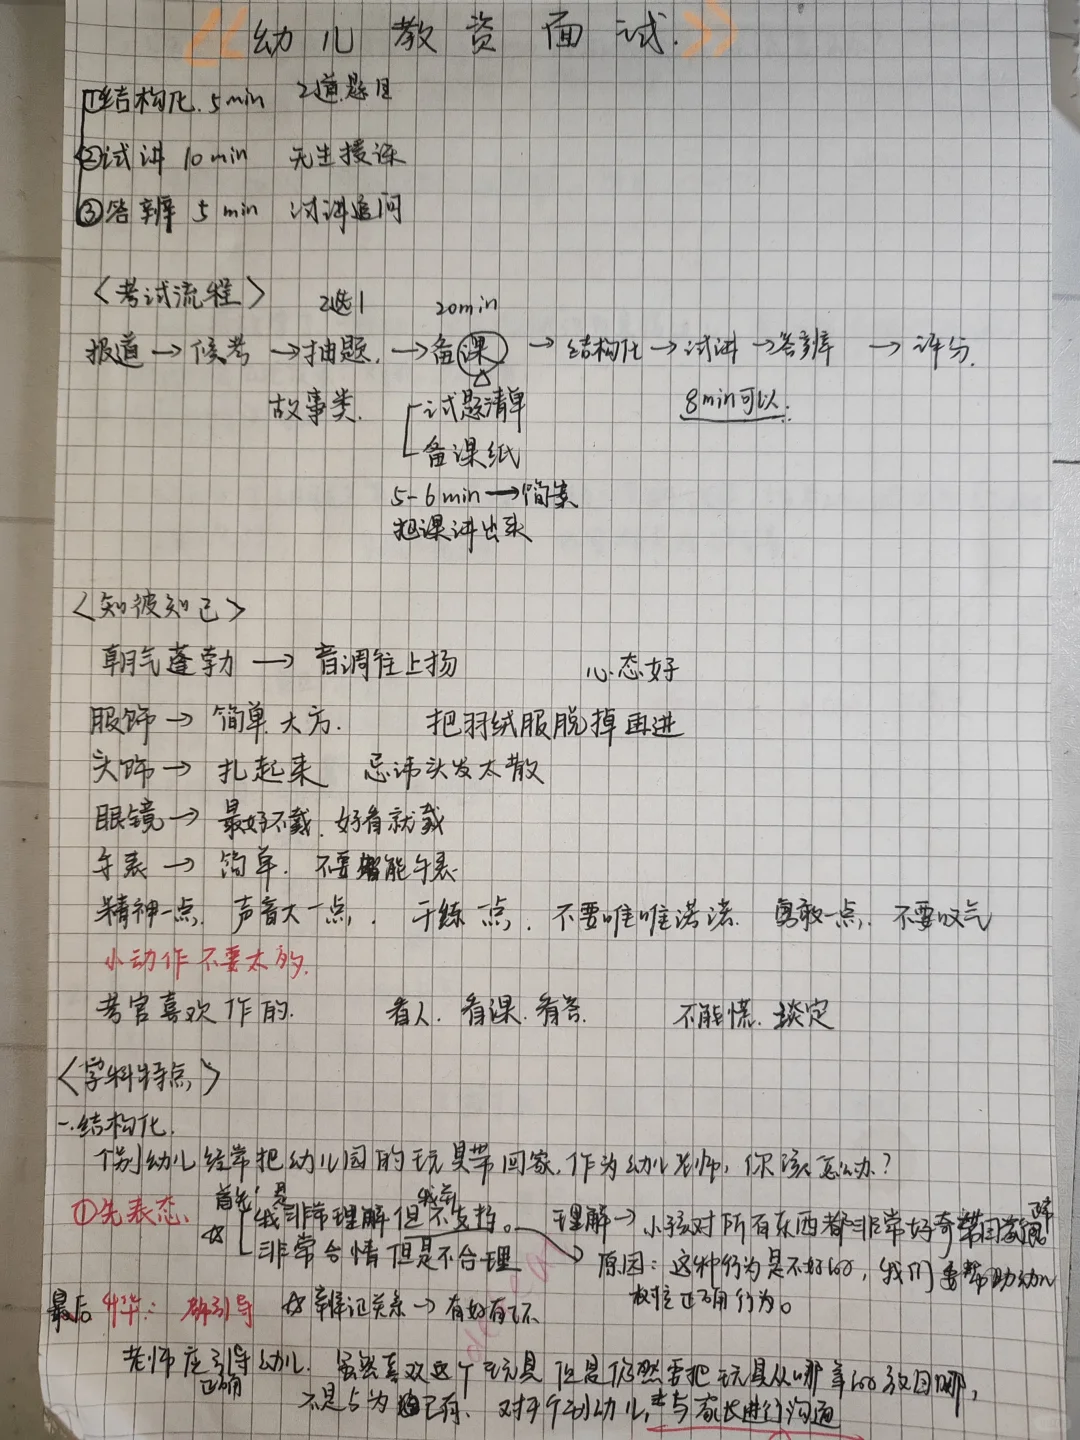 《幼儿教资面试.》
①结构化.5min 2道题目
②试讲 10min 无生授课
③答辩 5min 试讲追问
〈考试流程〉 2选1 20min
报道→候考→抽题.→备课→结构化→试讲→答辩→评分.
故事类. 试题清单 8min可以.
备课纸
5-6min→简案
把课讲出来
〈知彼知己〉
朝气蓬勃→音调往上扬 心态好
服饰→简单.大方. 把羽绒服脱掉再进
头饰→扎起来 忌讳头发太散
眼镜→最好不戴.好看就戴
手表→简单.不要智能手表
精神一点. 声音大一点. 干练一点. 不要唯唯诺诺. 勇敢一点. 不要叹气
小动作不要太多.
考官喜欢作的. 看人.看课.看答. 不能慌.淡定
〈学科特点〉
一.结构化.
个别幼儿经常把幼儿园的玩具带回家.作为幼儿老师,你该怎么办?
①先表态. 首先 是 我非常理解但不支持。 理解→小孩对所有东西都非常好奇
☆ 非常合情但是不合理 原因:这种行为是不好的,我们要帮助幼儿
树立正确行为。
最后 升华: ☆辩证关系→有好有坏
老师应引导幼儿. 虽然喜欢这个玩具但是仍然要把玩具从哪拿的放回哪,
正确 不是占为己有. 对于个别幼儿,与家长进行沟通